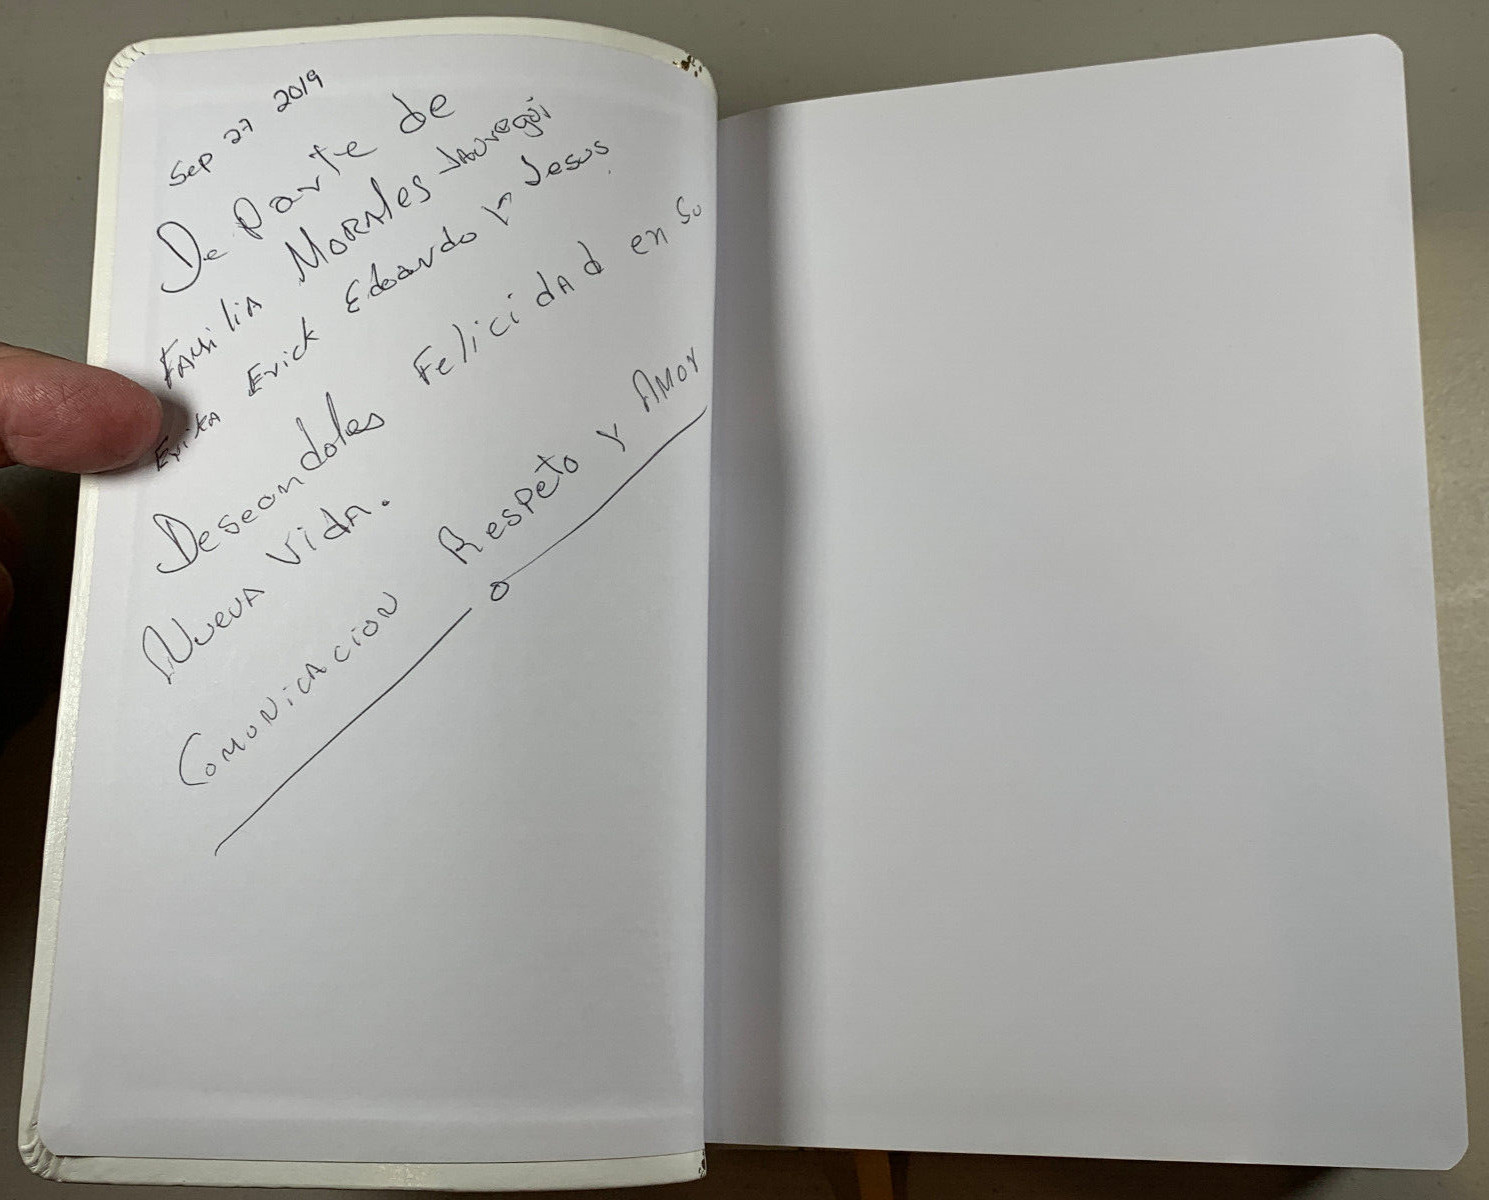 Sep 27 2019
De parte de
FAMiliA MORAles JAuregui
ErikA Erick Eduardo Y Jesus
Deseandoles Felicidad en su
Nueva Vida.
COMUNiCACiON Respeto Y AMOR